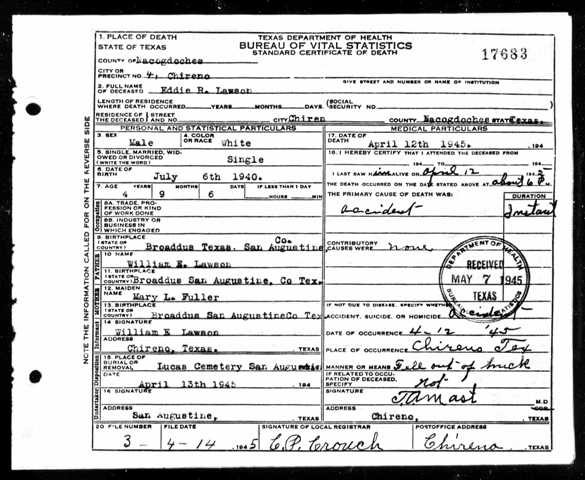 1. PLACE OF DEATH
STATE OF TEXAS
TEXAS DEPARTMENT OF HEALTH
BUREAU OF VITAL STATISTICS
STANDARD CERTIFICATE OF DEATH
17683
COUNTY OF Nacogdoches
CITY OR
PRECINCT NO 4, Chireno
GIVE STREET AND NUMBER OR NAME OF INSTITUTION
2. FULL NAME
OF DECEASED Eddie R. Lawson
LENGTH OF RESIDENCE
WHERE DEATH OCCURRED YEARS MONTHS DAYS
(SOCIAL
SECURITY NO
RESIDENCE OF STREET
THE DECEASED AND NO. CITY Chiren COUNTY Nacogdoches STATE Texas.
PERSONAL AND STATISTICAL PARTICULARS
3. SEX
Male
4. COLOR
OR RACE
White
5. SINGLE, MARRIED, WID-
OWED OR DIVORCED
(WRITE THE WORD)
Single
6. DATE OF
BIRTH July 6th 1940.
7. AGE YEARS MONTHS DAYS IF LESS THAN 1 DAY
4 9 6 HOURS MIN
8A. TRADE, PRO-
FESSION OR KIND
OF WORK DONE
8B. INDUSTRY OR
BUSINESS IN
WHICH ENGAGED
9. BIRTHPLACE
(STATE OR
COUNTRY) Broaddus Texas. San Augustine Co.
10 NAME
William E. Lawson
11. BIRTHPLACE
(STATE OR
COUNTRY) Broaddus San Augustine, Co Tex.
12. MAIDEN
NAME Mary L. Fuller
13. BIRTHPLACE
(STATE OR
COUNTRY) Broaddus San AugustineCo Tex
14 SIGNATURE
William E Lawson
ADDRESS
Chireno, Texas. TEXAS
15. PLACE OF
BURIAL OR
REMOVAL Lucas Cemetery San
DATE
April 13th 1945 194
16 SIGNATURE
ADDRESS
San Augustine, TEXAS
MEDICAL PARTICULARS
17. DATE OF
DEATH April 12th 1945. 194
18. I HEREBY CERTIFY THAT I ATTENDED THE DECEASED FROM
194 TO 194
I LAST SAW ALIVE ON April 12 1945
THE DEATH OCCURRED ON THE DATE STATED ABOVE AT about 6 P M.
THE PRIMARY CAUSE OF DEATH WAS:
DURATION
accident
Instant
CONTRIBUTORY
CAUSES WERE none
DEPARTMENT OF HEALTH
RECEIVED
MAY 7 1945
TEXAS
IF NOT DUE TO DISEASE, SPECIFY WHETHER
ACCIDENT, SUICIDE, OR HOMICIDE accident
DATE OF OCCURRENCE 4-12 '45
PLACE OF OCCURRENCE Chireno Tex
MANNER OR MEANS Fell out of truck
IF RELATED TO OCCU-
PATION OF DECEASED,
SPECIFY not
SIGNATURE
M.D
ADDRESS
Chireno, TEXAS
20 FILE NUMBER
3-
FILE DATE
4-14 1945
SIGNATURE OF LOCAL REGISTRAR
C.P. Crouch
POSTOFFICE ADDRESS
Chireno TEXAS
NOTE THE INFORMATION CALLED FOR ON THE REVERSE SIDE